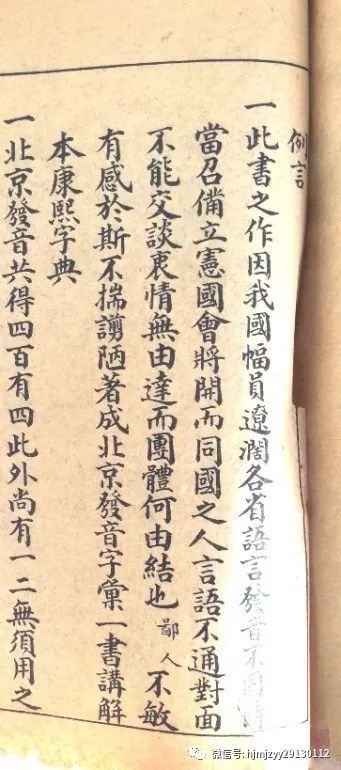 例言
一此書之作因我國幅員遼濶各省語言發音不同
當召備立憲國會將開而同國之人言語不通對面
不能交談衷情無由達而團體何由結也鄙人不敏
有感於斯不揣謭陋著成北京發音字彙一書講解
本康熙字典
一北京發音共得四百有四此外尚有一二無須用之
微信号: hjmjzyy29130112